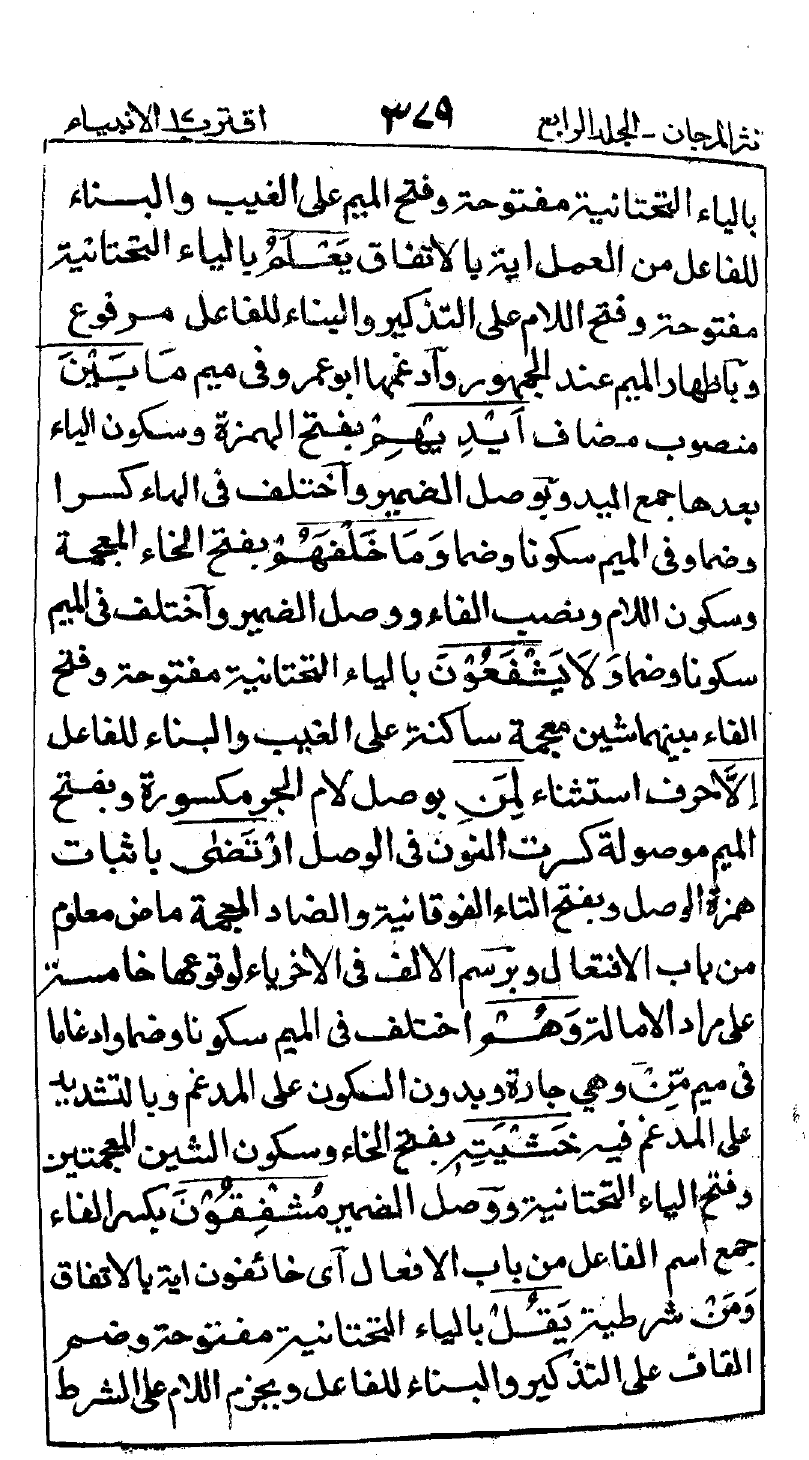 نثر المرجان - الجلد الرابع ٣٧٩ اقترب ١٧ الانبياء
بالياء التحتانية مفتوحة وفتح الميم على الغيب والبناء
للفاعل من العمل اية بالاتفاق يَعْلَمُ بالياء التحتانية
مفتوحة وفتح اللام على التذكير والبناء للفاعل مرفوع
وبآظهار الميم عند الجمهور وآدغمها ابو عمرو فى ميم مَا بَيْنَ
منصوب مضاف اَيْدِيْهِمْ بفتح الهمزة وسكون الياء
بعدها جمع اليد وبوصل الضمير وآختلف فى الهاء كسرا
وضما وفى الميم سكونا وضما وَمَا خَلْفَهُمْ بفتح الخاء المعجمة
وسكون اللام ونصب الفاء ووصل الضمير وآختلف فى الميم
سكونا وضما وَلَا يَشْفَعُوْنَ بالياء التحتانية مفتوحة وفتح
الفاء بينهما شين معجمة ساكنة على الغيب والبناء للفاعل
اِلَّا حرف استثناء لِمَنِ بوصل لام الجر مكسورة وبفتح
الميم موصولة كسرت النون فى الوصل ارْتَضٰى باثبات
همزة الوصل وبفتح التاء الفوقانية والضاد المعجمة ماض معلوم
من باب الافتعال وبرسم الالف فى الاخر ياء لوقوعها خامسة
على مراد الامالة وَهُمْ اختلف فى الميم سكونا وضما وادغاما
فى ميم مِّنْ وهى جارة وبدون السكون على المدغم وبالتشديد
على المدغم فيه خَشْيَتِهٖ بفتح الخاء وسكون الشين المعجمتين
وفتح الياء التحتانية ووصل الضمير مُشْفِقُوْنَ بكسر الفاء
جمع اسم الفاعل من باب الافعال آى خائفون اية بالاتفاق
وَمَنْ شرطية يَقُلْ بالياء التحتانية مفتوحة وضم
القاف على التذكير والبناء للفاعل وبجزم اللام على الشرط